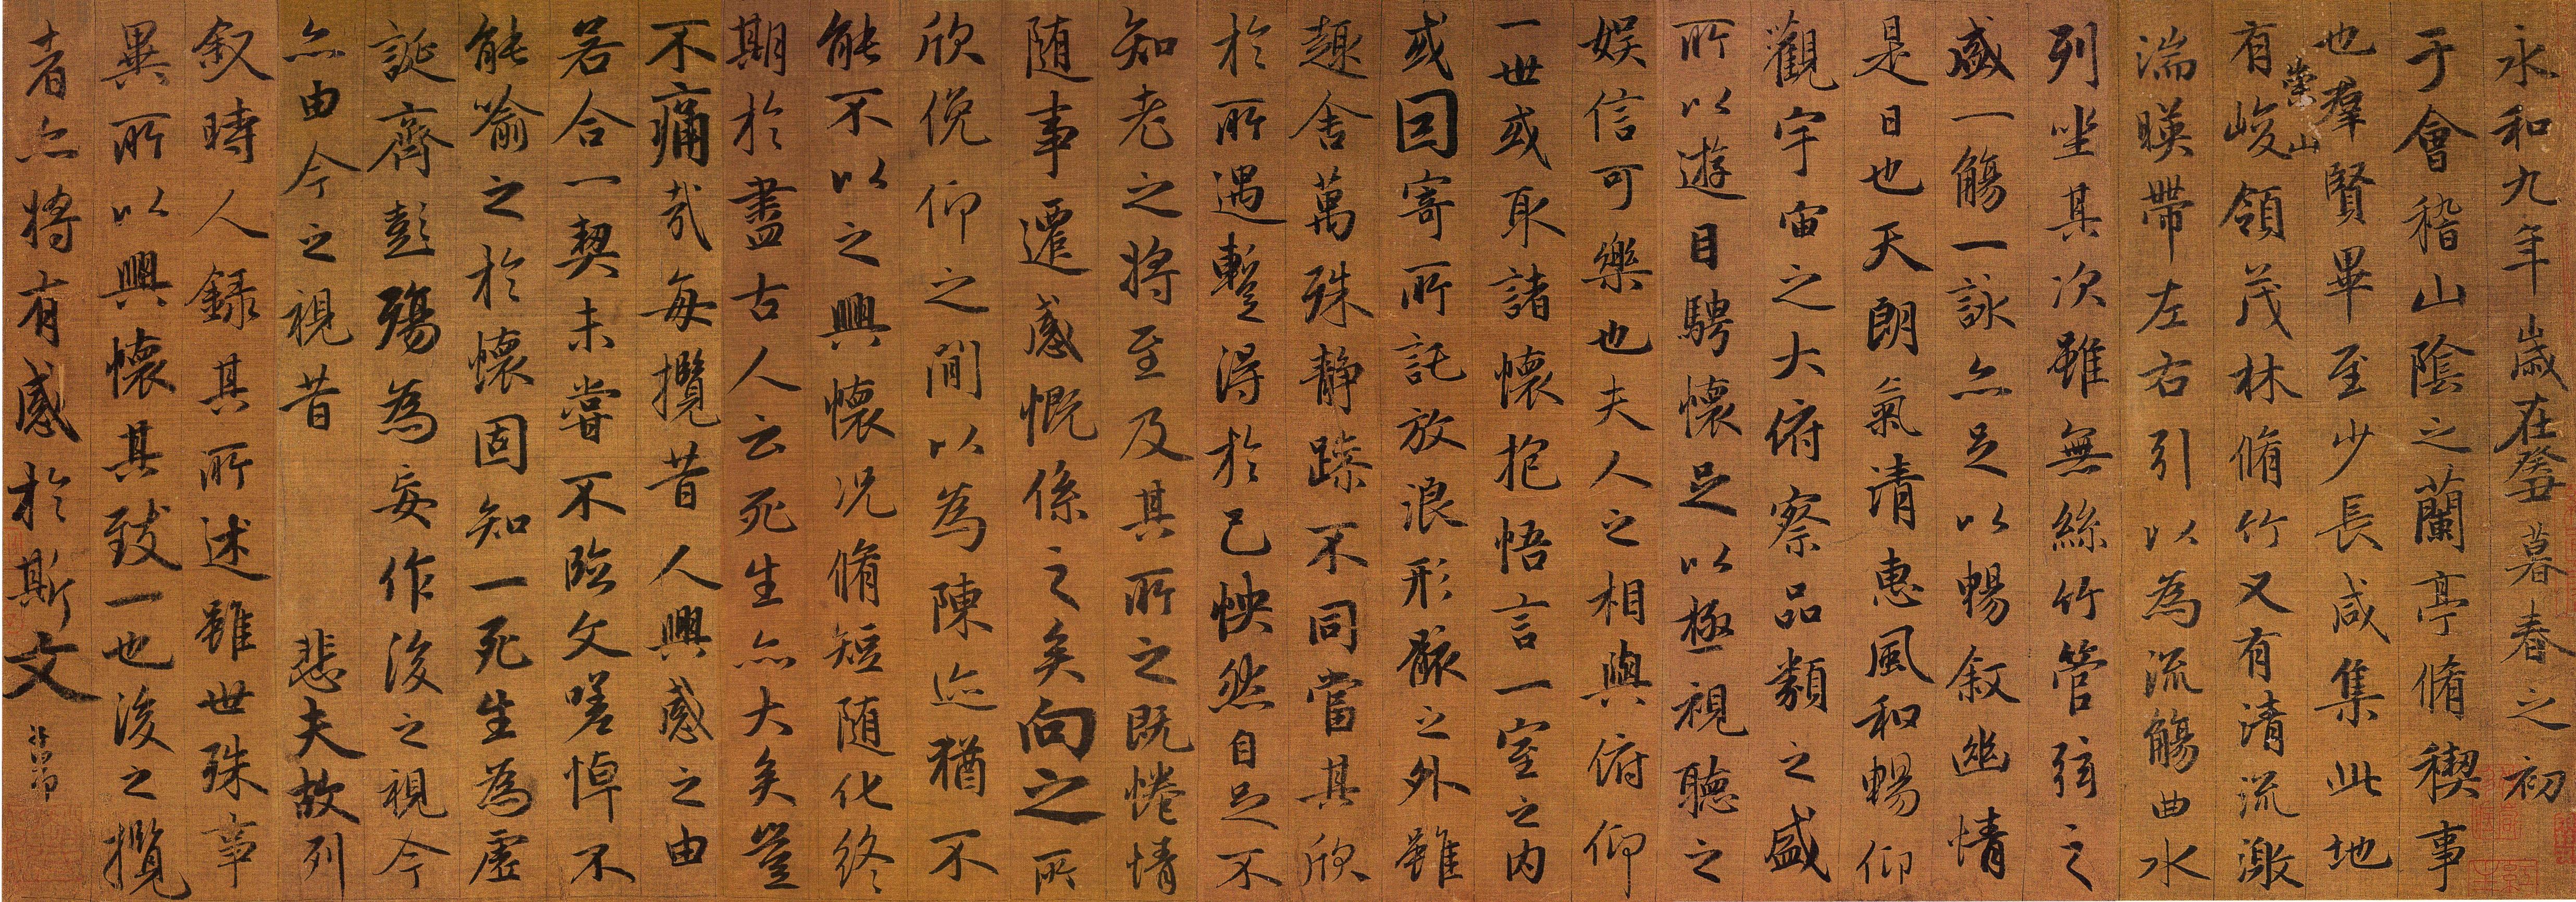 永和九年歲在癸丑暮春之初
于會稽山陰之蘭亭脩稧事
也羣賢畢至少長咸集此地
有崇山峻領茂林脩竹又有清流激
湍暎帶左右引以為流觴曲水
列坐其次雖無絲竹管弦之
盛一觴一詠亦足以暢叙幽情
是日也天朗氣清惠風和暢仰
觀宇宙之大俯察品類之盛
所以遊目騁懷足以極視聽之
娛信可樂也夫人之相與俯仰
一世或取諸懷抱悟言一室之内
或因寄所託放浪形骸之外雖
趣舍萬殊静躁不同當其欣
於所遇暫得於己怏然自足不
知老之將至及其所之既惓情
随事遷感慨係之矣向之所
欣俛仰之閒以為陳迹猶不
能不以之興懷况脩短随化終
期於盡古人云死生亦大矣豈
不痛哉每攬昔人興感之由
若合一契未嘗不臨文嗟悼不
能喻之於懷固知一死生為虚
誕齊彭殤為妄作後之視今
亦由今之視昔 悲夫故列
叙時人録其所述雖世殊事
異所以興懷其致一也後之攬
者亦將有感於斯文